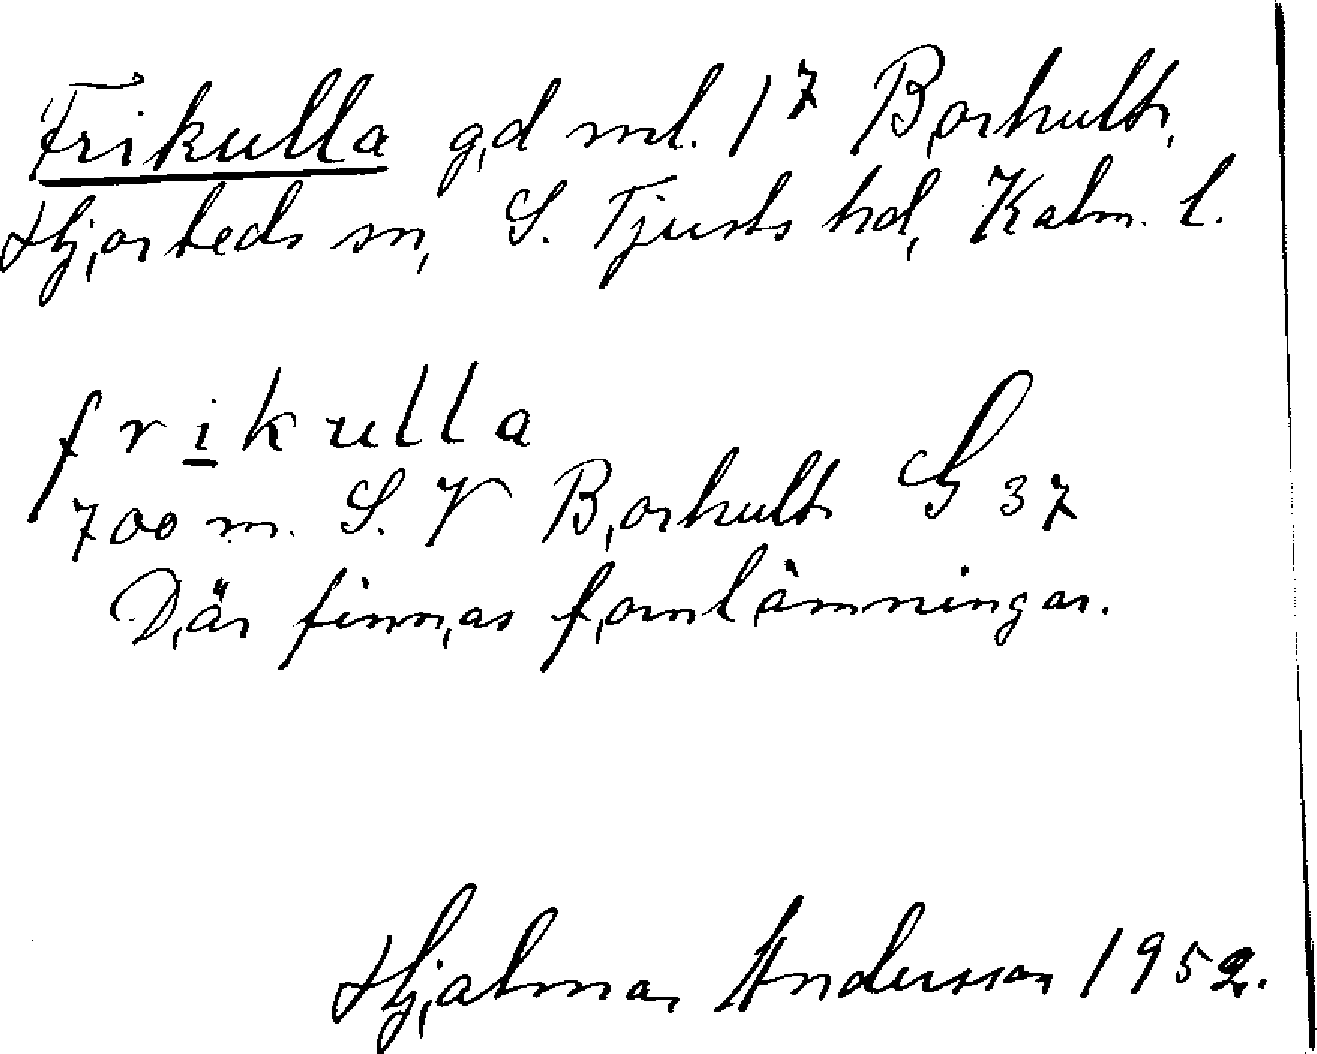 Frikulla gd ml. 1⁷ Borhult,
Hjorteds sn, S. Tjusts hd, Kalm. l.
frikulla
700 m. S. V Borhult G 37
Där finnas fornlämningar.
Hjalmar Andersson 1952.